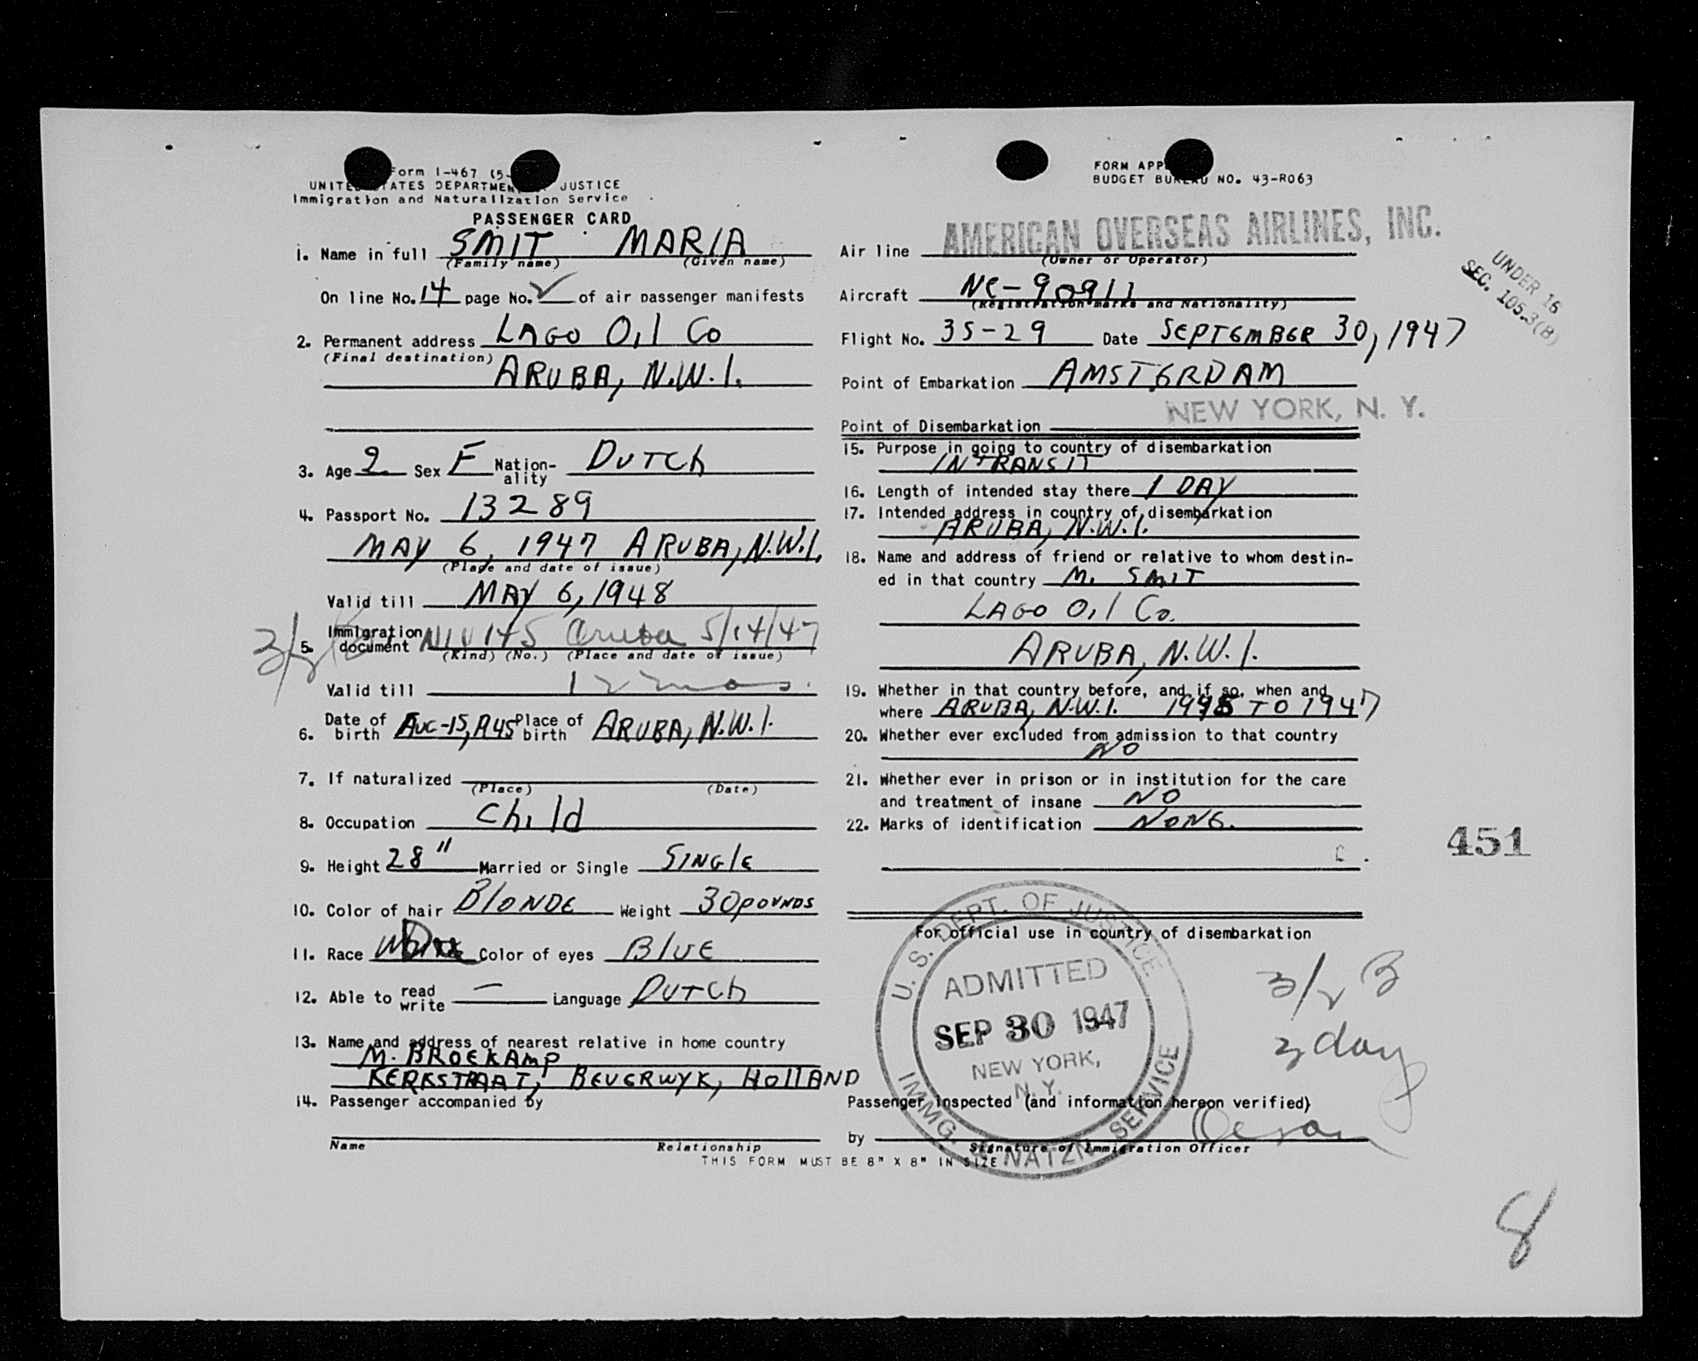 Form I-467 (5-
UNITED STATES DEPARTMENT OF JUSTICE
Immigration and Naturalization Service
PASSENGER CARD
1. Name in full SMIT MARIA
(Family name) (Given name)
On line No. 14 page No. of air passenger manifests
2. Permanent address LAGO OIL CO
(Final destination) ARUBA, N.W.I.
3. Age 2 Sex F Nation-ality DUTCH
4. Passport No. 13289
MAY 6, 1947 ARUBA, N.W.I.
(Place and date of issue)
Valid till MAY 6, 1948
5. Immigration document NIV 145 Aruba 5/14/47
(Kind) (No.) (Place and date of issue)
Valid till 12 mos.
6. Date of birth AUG-15, 1945 Place of birth ARUBA, N.W.I.
7. If naturalized
(Place) (Date)
8. Occupation Child
9. Height 28" Married or Single SINGLE
10. Color of hair BLONDE Weight 30 POUNDS
11. Race Color of eyes BLUE
12. Able to read write — Language DUTCH
13. Name and address of nearest relative in home country
M. BROEKAMP
KERKSTRAAT, BEVERWYK, HOLLAND
14. Passenger accompanied by
Name Relationship
THIS FORM MUST BE 8" X 8" IN SIZE
FORM APP
BUDGET BUREAU NO. 43-R063
Air line AMERICAN OVERSEAS AIRLINES, INC.
(Owner or Operator)
Aircraft NC-90911
(Registration marks and Nationality)
UNDER 16
SEC. 105.3(B)
Flight No. 35-29 Date SEPTEMBER 30, 1947
Point of Embarkation AMSTERDAM
NEW YORK, N. Y.
Point of Disembarkation
15. Purpose in going to country of disembarkation
IN TRANSIT
16. Length of intended stay there 1 DAY
17. Intended address in country of disembarkation
ARUBA, N.W.I.
18. Name and address of friend or relative to whom destin-
ed in that country M. SMIT
LAGO OIL CO.
ARUBA, N.W.I.
19. Whether in that country before, and if so, when and
where ARUBA, N.W.I. 1945 TO 1947
20. Whether ever excluded from admission to that country
NO
21. Whether ever in prison or in institution for the care
and treatment of insane NO
22. Marks of identification NONE.
451
For official use in country of disembarkation
U. S. DEPT. OF JUSTICE
ADMITTED
SEP 30 1947
NEW YORK,
N. Y.
IMMG. & NATZN. SERVICE
3/2 B
2 day
Passenger inspected (and information hereon verified)
by
Signature of Immigration Officer
8